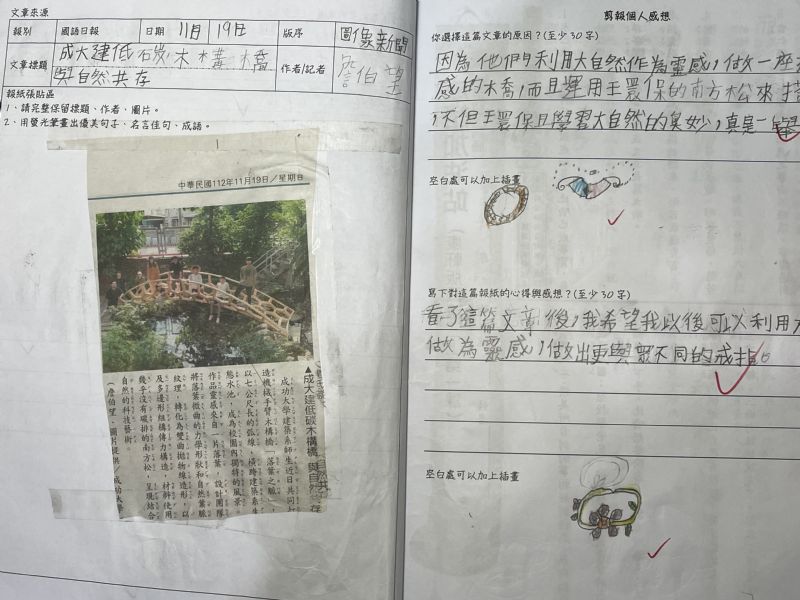 文章來源
報別 國語日報 日期 11月 19日 版序 圖像新聞
文章標題 成大建低石炭木構橋 與自然共存 作者/記者 詹伯望
報紙張貼區
1、請完整保留標題、作者、圖片。
2、用螢光筆畫出優美句子、名言佳句、成語。
中華民國112年11月19日/星期日
▲成大建低碳木構橋 與自然共存
成功大學建築系師生近日共同
造機械手臂木構橋「落葉之脈」,
以七公尺長的弧線,橫跨建築系生
態水池,成為校園內獨特的風景。
作品靈感來自一片落葉,設計團隊
將落葉微曲的力學形狀和自然葉脈
紋理,轉化為雙曲拋物線造形,以
及多邊形組構傳力構造,材料使用
幾乎沒有碳排的南方松,呈現結合
自然的科技藝術。
(詹伯望,圖片提供/成功大學
剪報個人感想
你選擇這篇文章的原因?(至少30字)
因為他們利用大自然作為靈感,做一座
感的木喬,而且運用王環保的南方松來
,不但王環保且學習大自然的奧妙,真是一舉
空白處可以加上插畫
寫下對這篇報紙的心得與感想?(至少30字)
看了這篇文章後,我希望我以後可以利用大
做為靈感,做出更與眾不同的戒指。
空白處可以加上插畫